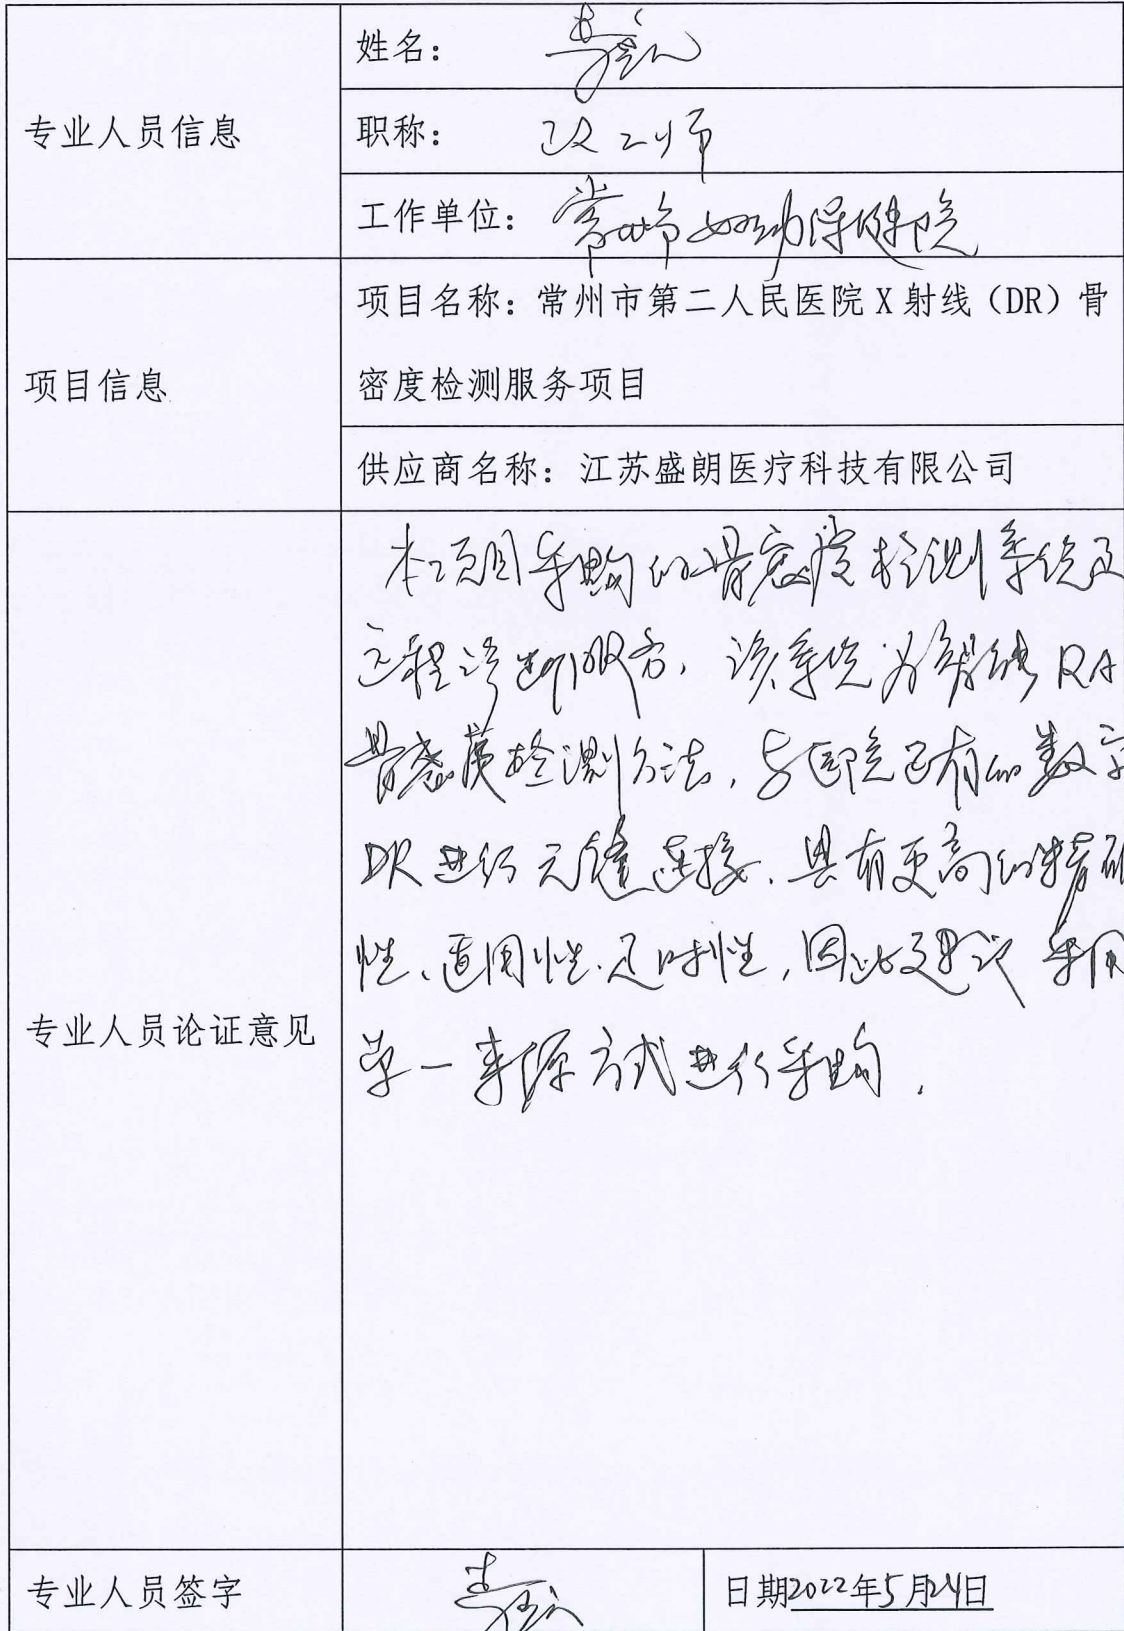 专业人员信息
姓名：
职称：
工作单位：常州市妇幼保健院
项目信息
项目名称：常州市第二人民医院 X 射线（DR）骨
密度检测服务项目
供应商名称：江苏盛朗医疗科技有限公司
专业人员论证意见
本项目采购的骨密度检测系统及
远程诊断服务，该系统为智能 RA
骨密度检测方法，与医院已有的数字
DR 进行无缝连接，具有更高的精确
性、适用性、及时性，因此建议采用
单一来源方式进行采购．
专业人员签字
日期2022年5月24日